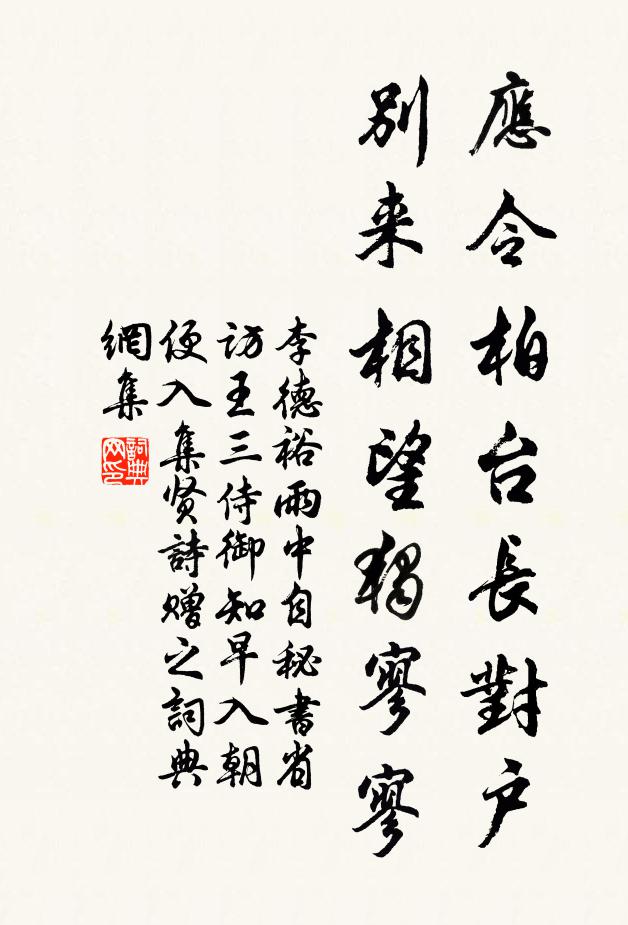 應令柏台長對户
別来相望獨寥寥
李德裕雨中自秘書省
訪王三侍御知早入朝
便入集贤詩赠之詞典
網集
詞典網印